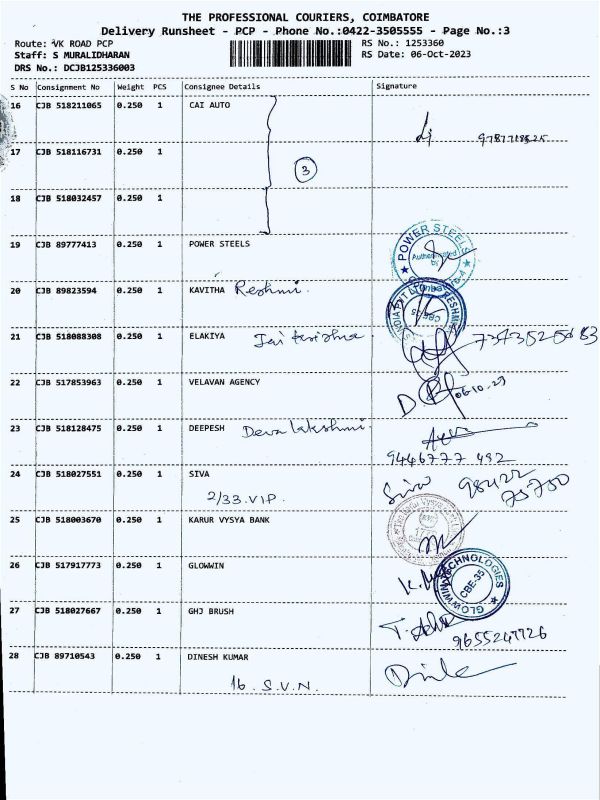 THE PROFESSIONAL COURIERS, COIMBATORE
Delivery Runsheet - PCP - Phone No.:0422-3505555 - Page No.:3
Route: VK ROAD PCP RS No.: 1253360
Staff: S MURALIDHARAN RS Date: 06-Oct-2023
DRS No.: DCJB125336003
S No Consignment No Weight PCS Consignee Details Signature
16 CJB 518211065 0.250 1 CAI AUTO
17 CJB 518116731 0.250 1
3
18 CJB 518032457 0.250 1
19 CJB 89777413 0.250 1 POWER STEELS
POWER STEELS
20 CJB 89823594 0.250 1 KAVITHA Reshmi.
21 CJB 518088308 0.250 1 ELAKIYA Jai
22 CJB 517853963 0.250 1 VELAVAN AGENCY
06-10-23
23 CJB 518128475 0.250 1 DEEPESH Devalakshmi.
9446777 492
24 CJB 518027551 0.250 1 SIVA Siva 98422
2/33.VIP. 75750
25 CJB 518003670 0.250 1 KARUR VYSYA BANK
26 CJB 517917773 0.250 1 GLOWWIN
GLOWWIN TECHNOLOGIES
CBE-35
27 CJB 518027667 0.250 1 GHJ BRUSH
9655247726
28 CJB 89710543 0.250 1 DINESH KUMAR
16. S.V.N.